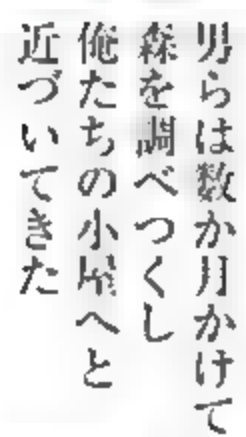 男らは数か月かけて
森を調べつくし
俺たちの小屋へと
近づいてきた